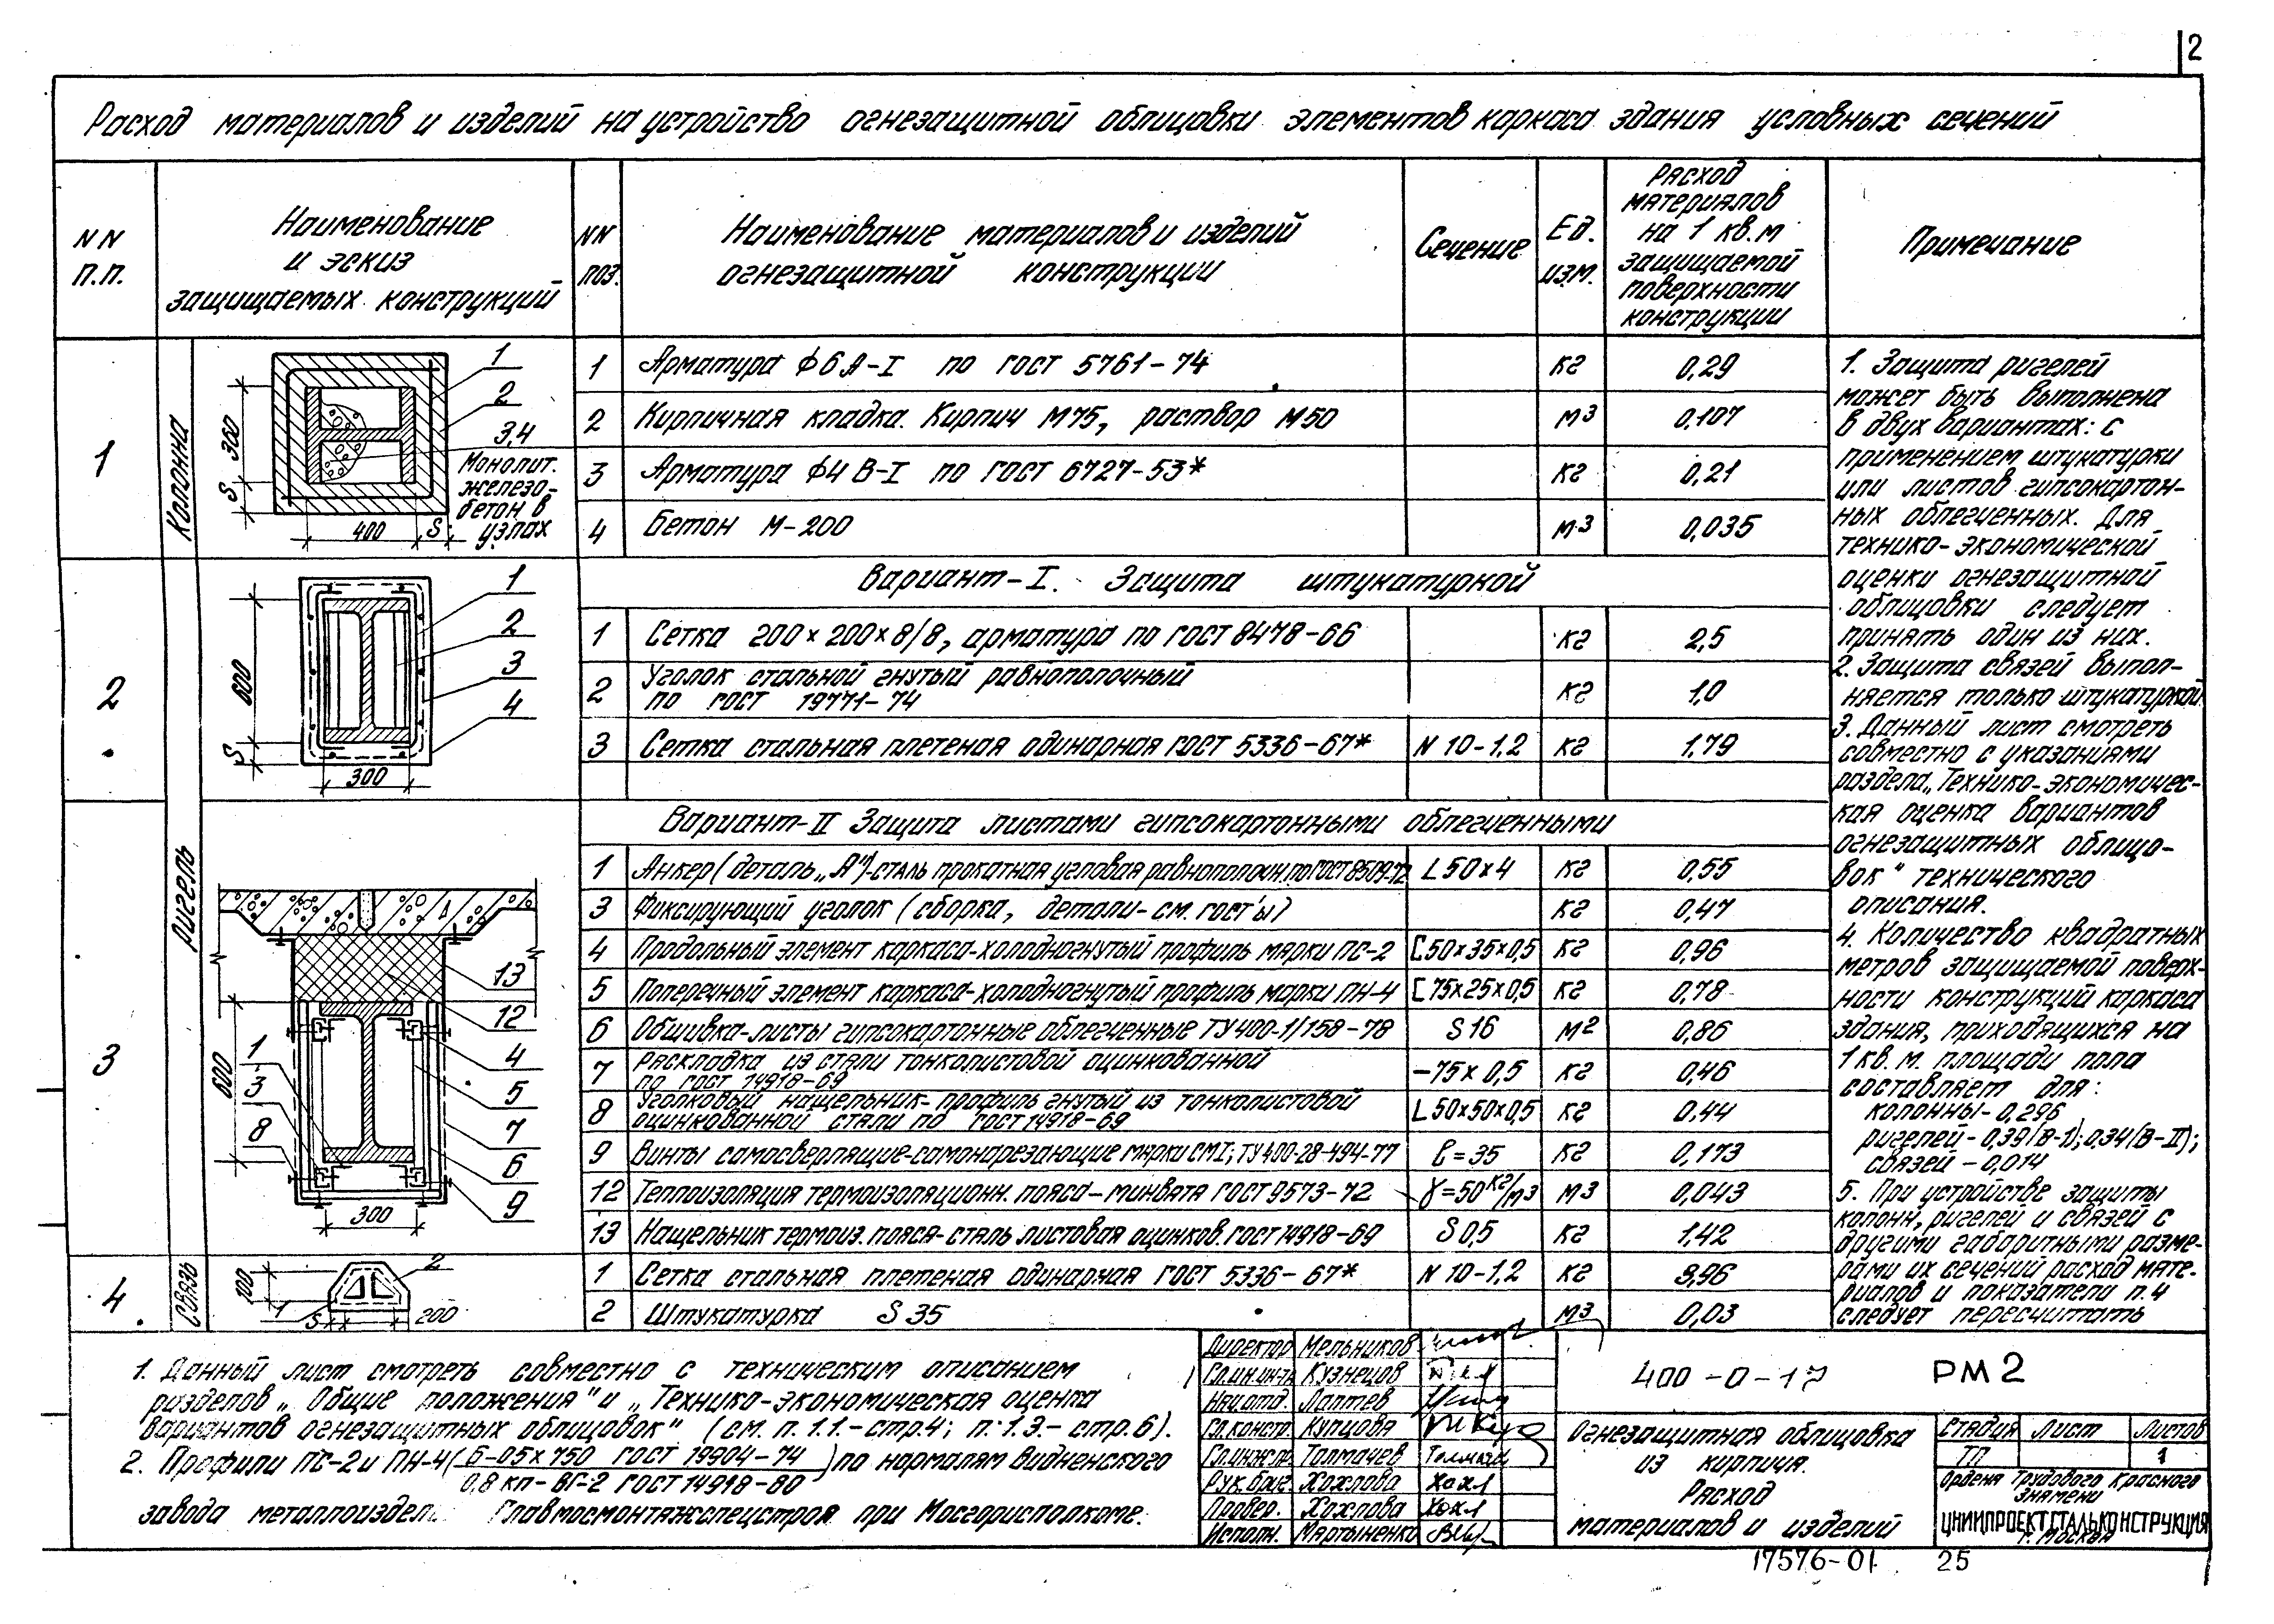 2
Расход материалов и изделий на устройство огнезащитной облицовки элементов каркаса здания условных сечений
NN
п.п.
Наименование
и эскиз
защищаемых конструкций
NN
поз.
Наименование материалов и изделий
огнезащитной конструкции
Сечение
Ед.
изм.
Расход
материалов
на 1 кв.м
защищаемой
поверхности
конструкции
Примечание
1
Колонна
360
S
400
S
1
2
3,4
Монолит.
железо-
бетон в
узлах
1 Арматура ф6А-I по ГОСТ 5761-74 кг 0,29
2 Кирпичная кладка. Кирпич М75, раствор М50 м3 0,107
3 Арматура ф4 В-I по ГОСТ 6727-53* кг 0,21
4 Бетон М-200 м3 0,035
2
ригель
600
S
300
1
2
3
4
Вариант-I. Защита штукатуркой
1 Сетка 200×200×8/8, арматура по ГОСТ 8478-66 кг 2,5
2 Уголок стальной гнутый равнополочный
по ГОСТ 19771-74 кг 1,0
3 Сетка стальная плетеная одинарная ГОСТ 5336-67* N 10-1,2 кг 1,79
3
600
300
13
12
4
5
7
6
9
1
3
8
Вариант-II Защита листами гипсокартонными облегченными
1 Анкер (деталь „А")-сталь прокатная угловая равнополочн. по ГОСТ 8509-72 L 50×4 кг 0,55
3 Фиксирующий уголок (сборка, детали-см. гост'ы) кг 0,47
4 Продольный элемент каркаса-холодногнутый профиль марки ПС-2 [50×35×0,5 кг 0,96
5 Поперечный элемент каркаса-холодногнутый профиль марки ПН-4 [75×25×0,5 кг 0,78
6 Обшивка-листы гипсокартонные облегченные ТУ 400-1/158-78 S 16 м2 0,86
7 Раскладка из стали тонколистовой оцинкованной
по ГОСТ 14918-69 -75×0,5 кг 0,46
8 Уголковый нащельник-профиль гнутый из тонколистовой
оцинкованной стали по ГОСТ 14918-69 L 50×50×0,5 кг 0,44
9 Винты самосверлящие-самонарезающие марки СМ1; ТУ 400-28-494-77 ℓ=35 кг 0,173
12 Теплоизоляция термоизоляционн. пояса-минвата ГОСТ 9573-72 γ=50 кг/м3 м3 0,043
13 Нащельник термоиз. пояса-сталь листовая оцинков. ГОСТ 14918-69 S 0,5 кг 1,42
4
связь
100
S
200
1
2
1 Сетка стальная плетеная одинарная ГОСТ 5336-67* N 10-1,2 кг 3,96
2 Штукатурка S 35 м3 0,03
1. Защита ригелей
может быть выполнена
в двух вариантах: с
применением штукатурки
или листов гипсокартон-
ных облегченных. Для
технико-экономической
оценки огнезащитной
облицовки следует
принять один из них.
2. Защита связей выпол-
няется только штукатуркой.
3. Данный лист смотреть
совместно с указаниями
раздела „Технико-экономичес-
кая оценка вариантов
огнезащитных облицо-
вок" технического
описания.
4. Количество квадратных
метров защищаемой поверх-
ности конструкций каркаса
здания, приходящихся на
1 кв. м. площади пола
составляет для:
колонны-0,296
ригелей-0,39(В-I); 0,34(В-II);
связей-0,014
5. При устройстве защиты
колонн, ригелей и связей с
другими габаритными разме-
рами их сечений расход мате-
риалов и показатели п. 4
следует пересчитать
1. Данный лист смотреть совместно с техническим описанием
разделов „Общие положения" и „Технико-экономическая оценка
вариантов огнезащитных облицовок" (см. п. 1.1.-стр.4; п. 1.3.-стр.6).
2. Профили ПС-2 и ПН-4 (Б-05×750 ГОСТ 19904-74 / 0,8 кп-ВГ-2 ГОСТ 14918-80) по нормалям Видненского
завода металлоиздел. Главмосмонтажспецстроя при Мосгорисполкоме.
Директор Мельников
Гл.ин.ин-та Кузнецов
Нач.отд. Лаптев
Гл.констр. Купцова
Гл.инж.пр. Толмачев
Рук.бриг. Хохлова
Провер. Хохлова
Исполн. Мартыненко
400-0-17 РМ2
Огнезащитная облицовка
из кирпича.
Расход
материалов и изделий
Стадия Лист Листов
ТП 1
Ордена Трудового Красного
Знамени
ЦНИИПРОЕКТСТАЛЬКОНСТРУКЦИЯ
г. Москва
17576-01 25